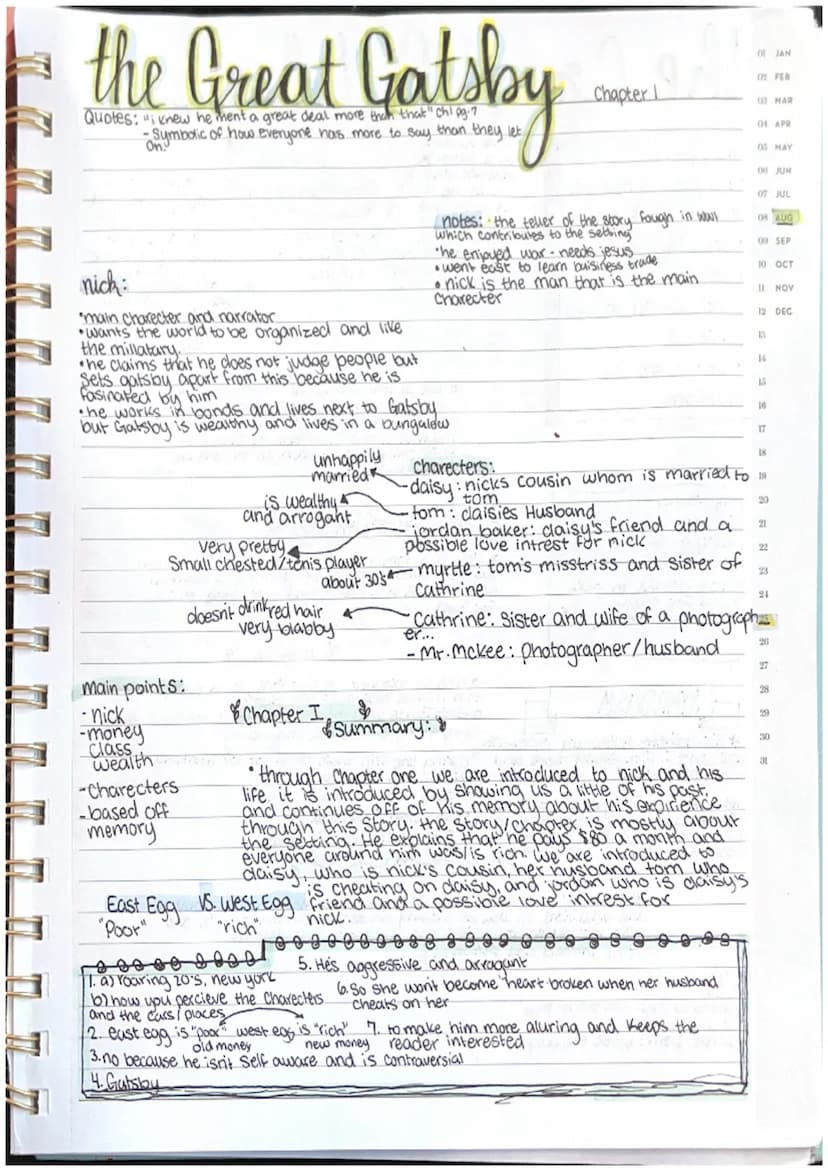 the Great Gatsby Chapter 1
Quotes: "i knew he ment a great deal more than that" ch1 pg.7
- Symbolic of how everyone has more to say than they let
on.
notes: • the teller of the story fough in WWI
which contributes to the setting
•he enjoyed war - needs jesus
•went east to learn buisness trade
• nick is the man that is the main
charecter
nick:
•main charecter and narrator
•wants the world to be organized and like
the millatary.
•he claims that he does not judge people but
sets gatsby apart from this because he is
fasinated by him
•he works in bonds and lives next to Gatsby
but Gatsby is wealthy and lives in a bungalow
charecters:
-daisy: nicks cousin whom is married to
tom
unhappily
married
-tom: daisies Husband
is wealthy
and arrogant
-jordan baker: daisy's friend and a
possible love intrest for nick
very pretty
Small chested/tenis player
- myrtle: tom's misstriss and sister of
cathrine
about 30's
- Cathrine: sister and wife of a photograph
er...
doesn't drink red hair
very blabby
- Mr. Mckee: photographer/husband
main points:
- nick
-money
class
wealth
-Charecters
-based off
memory
Chapter I
Summary:
• through chapter one we are introduced to nick and his
life. it is introduced by showing us a little of his past,
and continues off of his memory about his expirience
through this story. the story/chapter is mostly about
the setting. He explains that he pays $80 a month and
everyone around him was/is rich. We are introduced to
daisy, who is nick's cousin, her husband tom who
is cheating on daisy, and jordan who is daisy's
friend and a possible love intrest for
nick.
East Egg VS. West Egg
"Poor" "rich"
1. a) roaring 20's, new york
b) how you percieve the charecters
and the ears/places
2. east egg is "poor" west egg is "rich"
old money new money
3. no because he isn't self aware and is contraversial
4. Gatsby
5. He's aggressive and arragant
6. So she wont become heart broken when her husband
cheats on her
7. to make him more alluring and keeps the
reader interested
01 JAN
02 FEB
03 MAR
04 APR
05 MAY
06 JUN
07 JUL
08 AUG
09 SEP
10 OCT
11 NOV
12 DEC
13
14
15
16
17
18
19
20
21
22
23
24
25
26
27
28
29
30
31